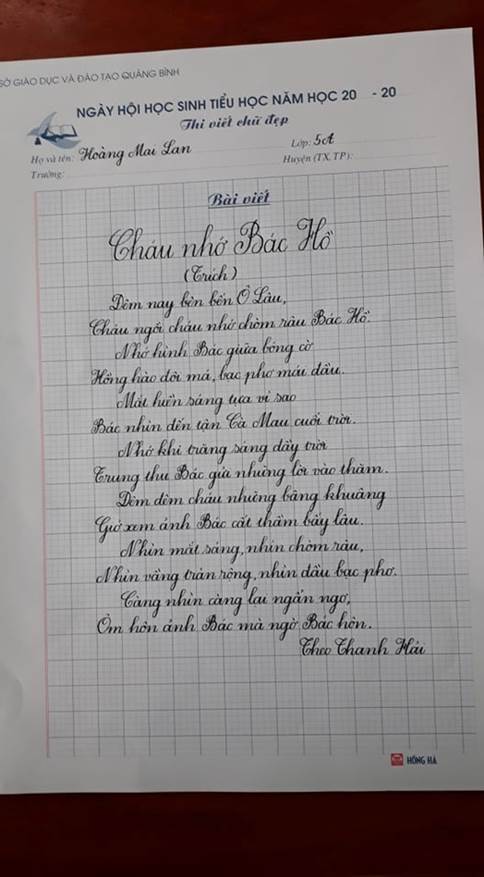 SỞ GIÁO DỤC VÀ ĐÀO TẠO QUẢNG BÌNH
NGÀY HỘI HỌC SINH TIỂU HỌC NĂM HỌC 20 - 20
Thi viết chữ đẹp
Họ và tên: Hoàng Mai Lan Lớp: 5A
Trường: Huyện (TX, TP):
Bài viết
Cháu nhớ Bác Hồ
(Trích)
Đêm nay bên bến Ô Lâu,
Cháu ngồi cháu nhớ chòm râu Bác Hồ.
Nhớ hình Bác giữa bóng cờ
Hồng hào đôi má, bạc phơ mái đầu.
Mắt hiền sáng tựa vì sao
Bác nhìn đến tận Cà Mau cuối trời.
Nhớ khi trăng sáng đầy trời
Trung thu Bác gửi những lời vào thăm.
Đêm đêm cháu những bâng khuâng
Giở xem ảnh Bác cất thầm bấy lâu.
Nhìn mắt sáng, nhìn chòm râu,
Nhìn vầng trán rộng, nhìn đầu bạc phơ.
Càng nhìn càng lại ngẩn ngơ,
Ôm hôn ảnh Bác mà ngờ Bác hôn.
Theo Thanh Hải
HỒNG HÀ